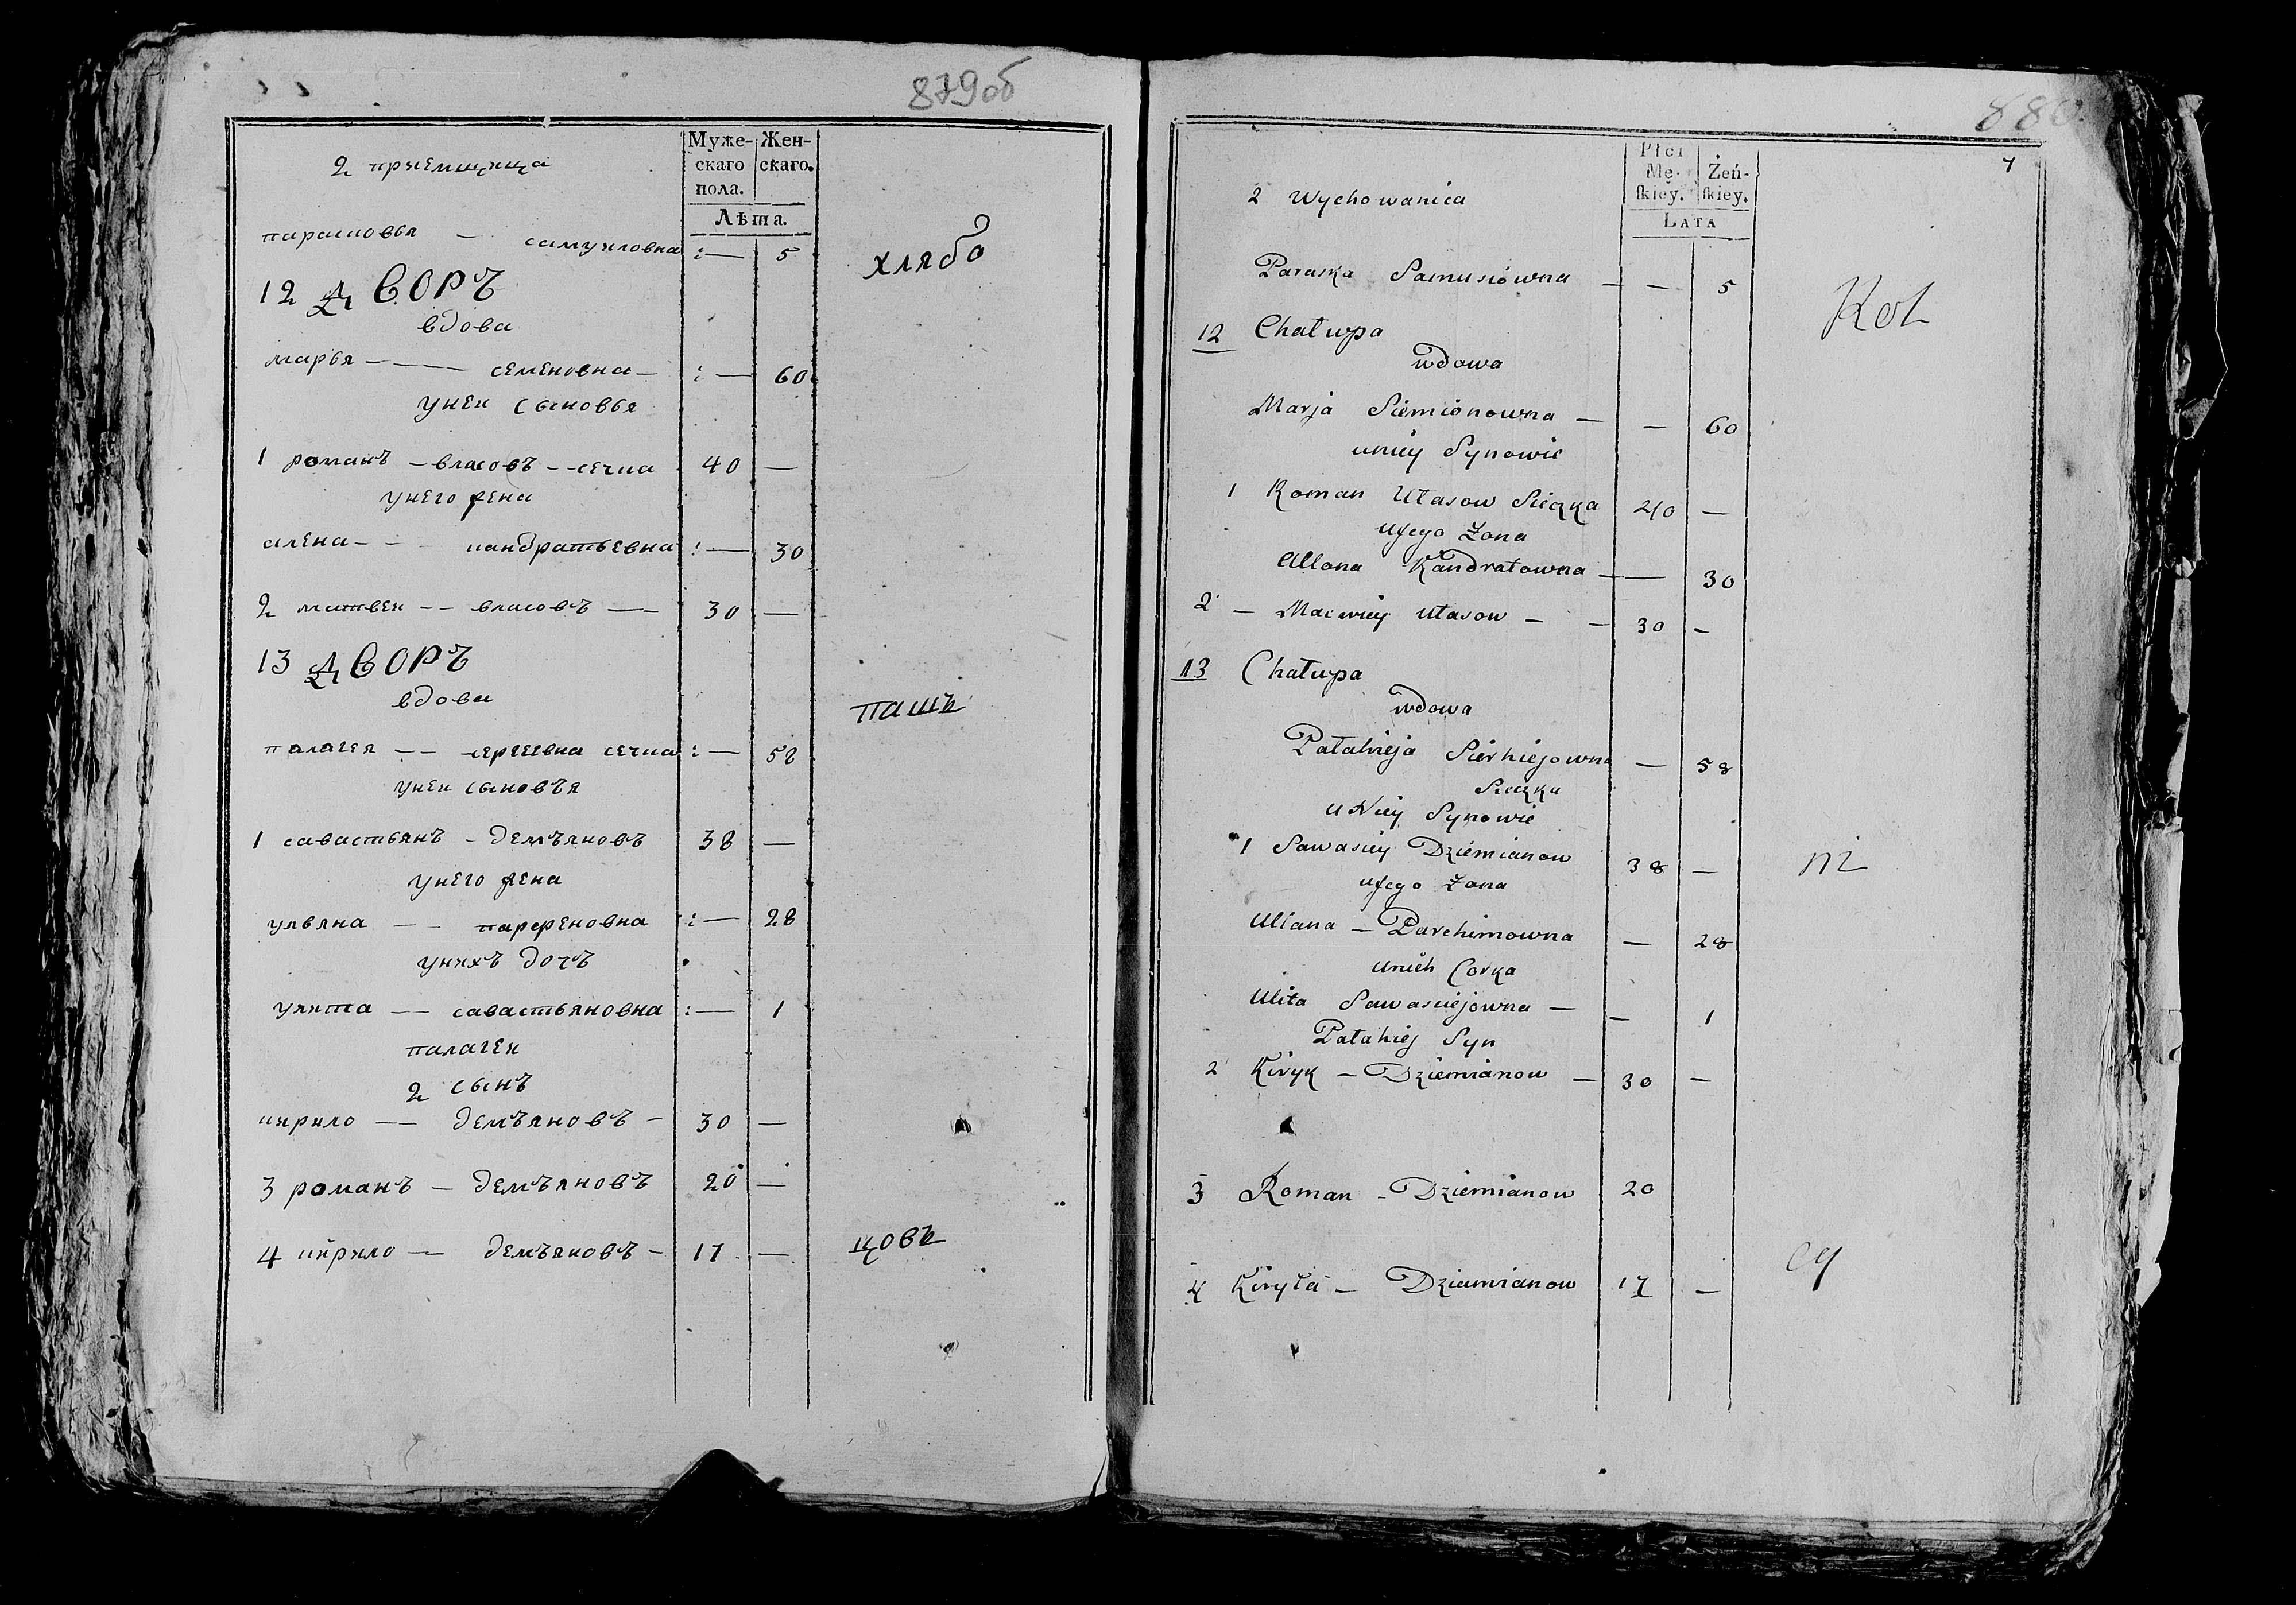 879об
Муже-
скаго
пола.
Жен-
скаго.
Лѣта.
2 приемщица
парасковья — самуиловна :— 5
хлебо
12 дворъ
вдова
марья — — — семеновна — :— 60
у неи сыновья
1 романъ — власовъ — сечка 40 —
у него жена
алена — — — кандратьевна :— 30
2 матвеи — — власовъ — — 30 —
13 дворъ
вдова
пашъ
палагея — — сергеевна сечка :— 58
у неи сыновъя
1 савастьянъ — демъяновъ 38 —
у него жена
ульяна — — парфеновна :— 28
у нихъ дочъ
улита — — савастьяновна :— 1
палагеи
2 сынъ
кирило — — демъяновъ — 30 —
3 романъ — демъяновъ 20 —
4 кирило — демъяновъ — 17 —
цовъ
880
7
Płci
Mę-
ſkiey.
Żeń-
ſkiey.
LATA
2 Wychowanica
Paraska Samusiówna — — 5
Rol
12 Chałupa
wdowa
Marja Siemionowna — — 60
u niey Synowie
1 Roman Ułasow Sieczka 40 —
u jego Żona
Allona Kandratowna — — 30
2 — Maćwiey Ułasow — — 30 —
13 Chałupa
wdowa
Pałahieja Sierhiejowna — 58
Sieczka
u Niey Synowie
1 Sawasciey Dziemianow 38 —
ni
u jego Żona
Ullana — Parchimowna — 28
u nich Corka
Ulita Sawasciejowna — — 1
Pałahiej Syn
2 Kiryk — Dziemianow — 30 —
3 Roman — Dziemianow 20
4 Kiryła — Dziemianow 17 —
cy